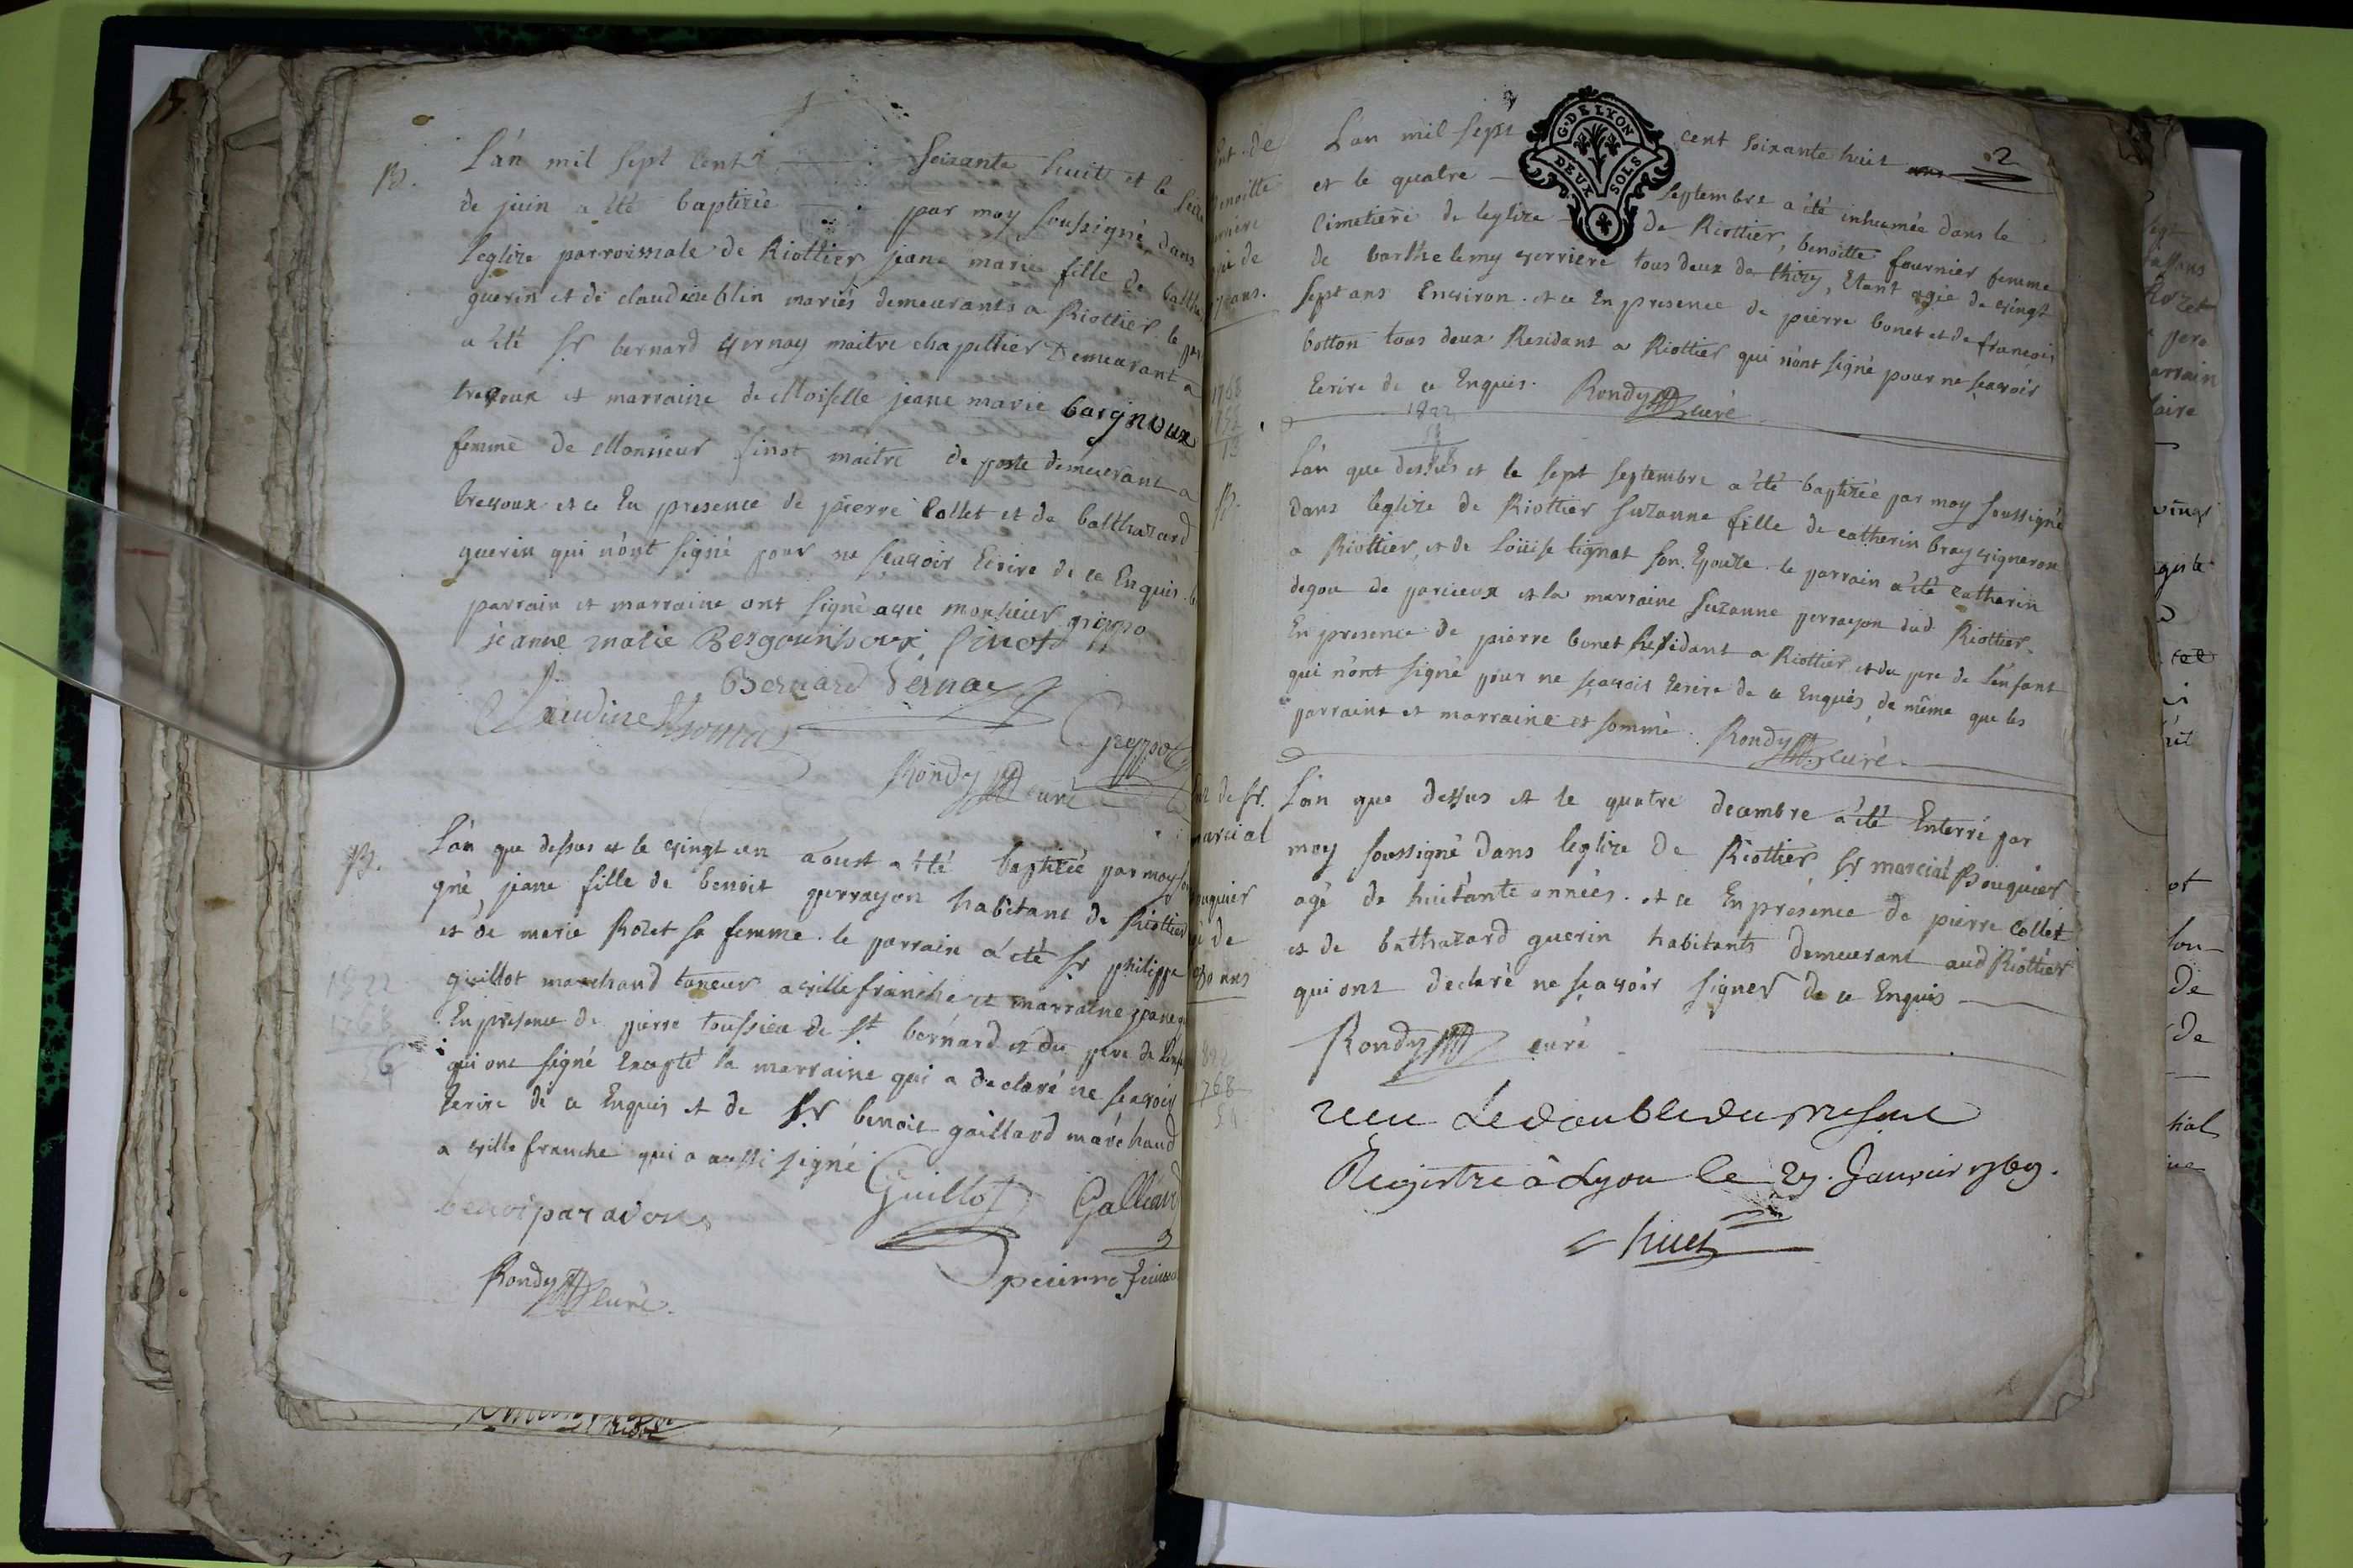 B.
L'án mil sept cent soixante huit et le seize
de juin a été baptizéé par moy soussigné dans
leglize parroissiale de Riottier jeane marie fille de
guerin et de claudine blin mariés demeurants a Riottier. le
a été Sr bernard vernay maitre chapellier demeurant a
trevoux et marraine demoiselle jeane marie
femme de Monsieur finot maitre de poste demeurant a
trevoux et ce En presence de pierre Collet et de balthazard
guerin qui n'ont signé pour ne sçavoir Ecrire de ce Enquis. le
parrain et marraine ont signé avec monsieur
jeanne marie finot
Bernard Vernay
Rondy curé
B.
L'án que dessus et le vingt un aoust a été baptizéé par moy
gné, jeane fille de benoit perrayon habitant de Riottier
et de marie Rozet sa femme. le parrain a été Sr philippe
guillot marchand taneur a villefranche et marraine jeane
En présence de pierre toussieu de St bernard et du pere de
qui ont signé Excepté la marraine qui a declaré ne sçavoir
Ecrire de ce Enquis et de Sr benoit gaillard marchand
a ville franche qui a aussi signé
1822
1768
Guillot Galliard
pierre
Rondy curé.
2
G. DE LYON
DEUX SOLS
L'an mil sept cent soixante huit
et le quatre septembre a été inhumée dans le
cimetiere de leglize de Riottier, benoitte fournier femme
de barthelemy verriere tous deux de thizy, Etant agée de vingt
sept ans Environ. et ce En presence de pierre bonet et de francois
botton tous deux Residant a Riottier qui n'ont signé pour ne sçavoir
Ecrire de ce Enquis. Rondy curé
1822
B.
L'án que dessus et le sept septembre a été baptizéé par moy soussigné
dans leglize de Riottier suzanne fille de catherin bray vigneron
a Riottier, et de Loüise lignat son Epouze. le parrain a été Catherin
degou de parcieux et la marraine suzanne perrayon dud. Riottier.
En presence de pierre bonet Residant a Riottier et du pere de l'enfant
qui n'ont signé pour ne sçavoir Ecrire de ce Enquis, de même que les
parrains et marraine et sommé. Rondy curé.
L'án que dessus et le quatre decembre a été Enterré par
moy soussigné dans leglize de Riottier, Sr marcial Bouquier
agé de huitante années. et ce En présence de pierre Collet
et de bathazard guerin habitants demeurant aud Riottier
qui ont declaré ne sçavoir signer de ce Enquis
Rondy curé
receu Le double du present
Registre à Lyon le 27. Janvier 1769.
huet